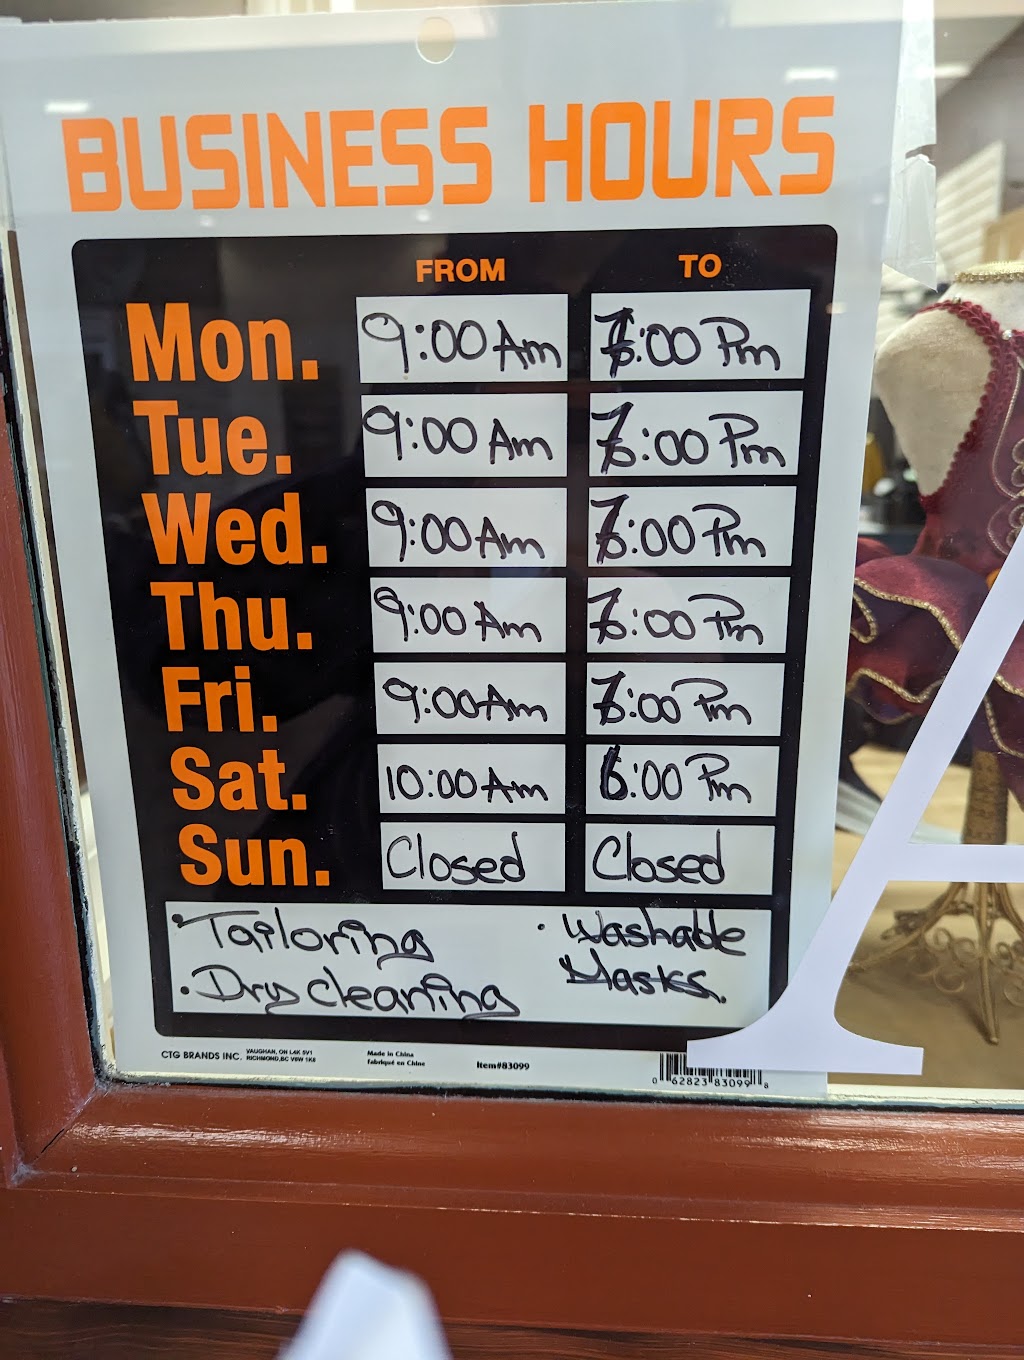 BUSINESS HOURS
FROM TO
Mon. 9:00 Am 7:00 Pm
Tue. 9:00 Am 7:00 Pm
Wed. 9:00 Am 7:00 Pm
Thu. 9:00 Am 7:00 Pm
Fri. 9:00 Am 7:00 Pm
Sat. 10:00 Am 6:00 Pm
Sun. Closed Closed
• Tailoring • Washable
• Dry cleaning Masks.
CTG BRANDS INC. VAUGHAN, ON L4K 5V1 Made in China
RICHMOND, BC V6W 1K8 Fabriqué en Chine Item#83099
0 62823 83099 8
A